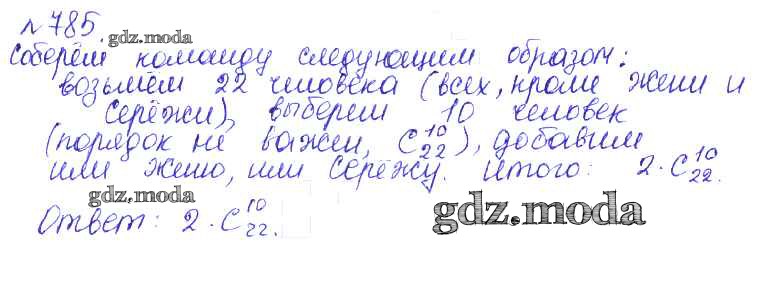 №785.
gdz.moda
Соберём команду следующим образом:
возьмём 22 человека (всех, кроме Жени и
Серёжи), выберем 10 человек
(порядок не важен, C₂₂¹⁰), добавим
или Женю, или Серёжу. Итого: 2·C₂₂¹⁰.
gdz.moda
Ответ: 2·C₂₂¹⁰.
gdz.moda